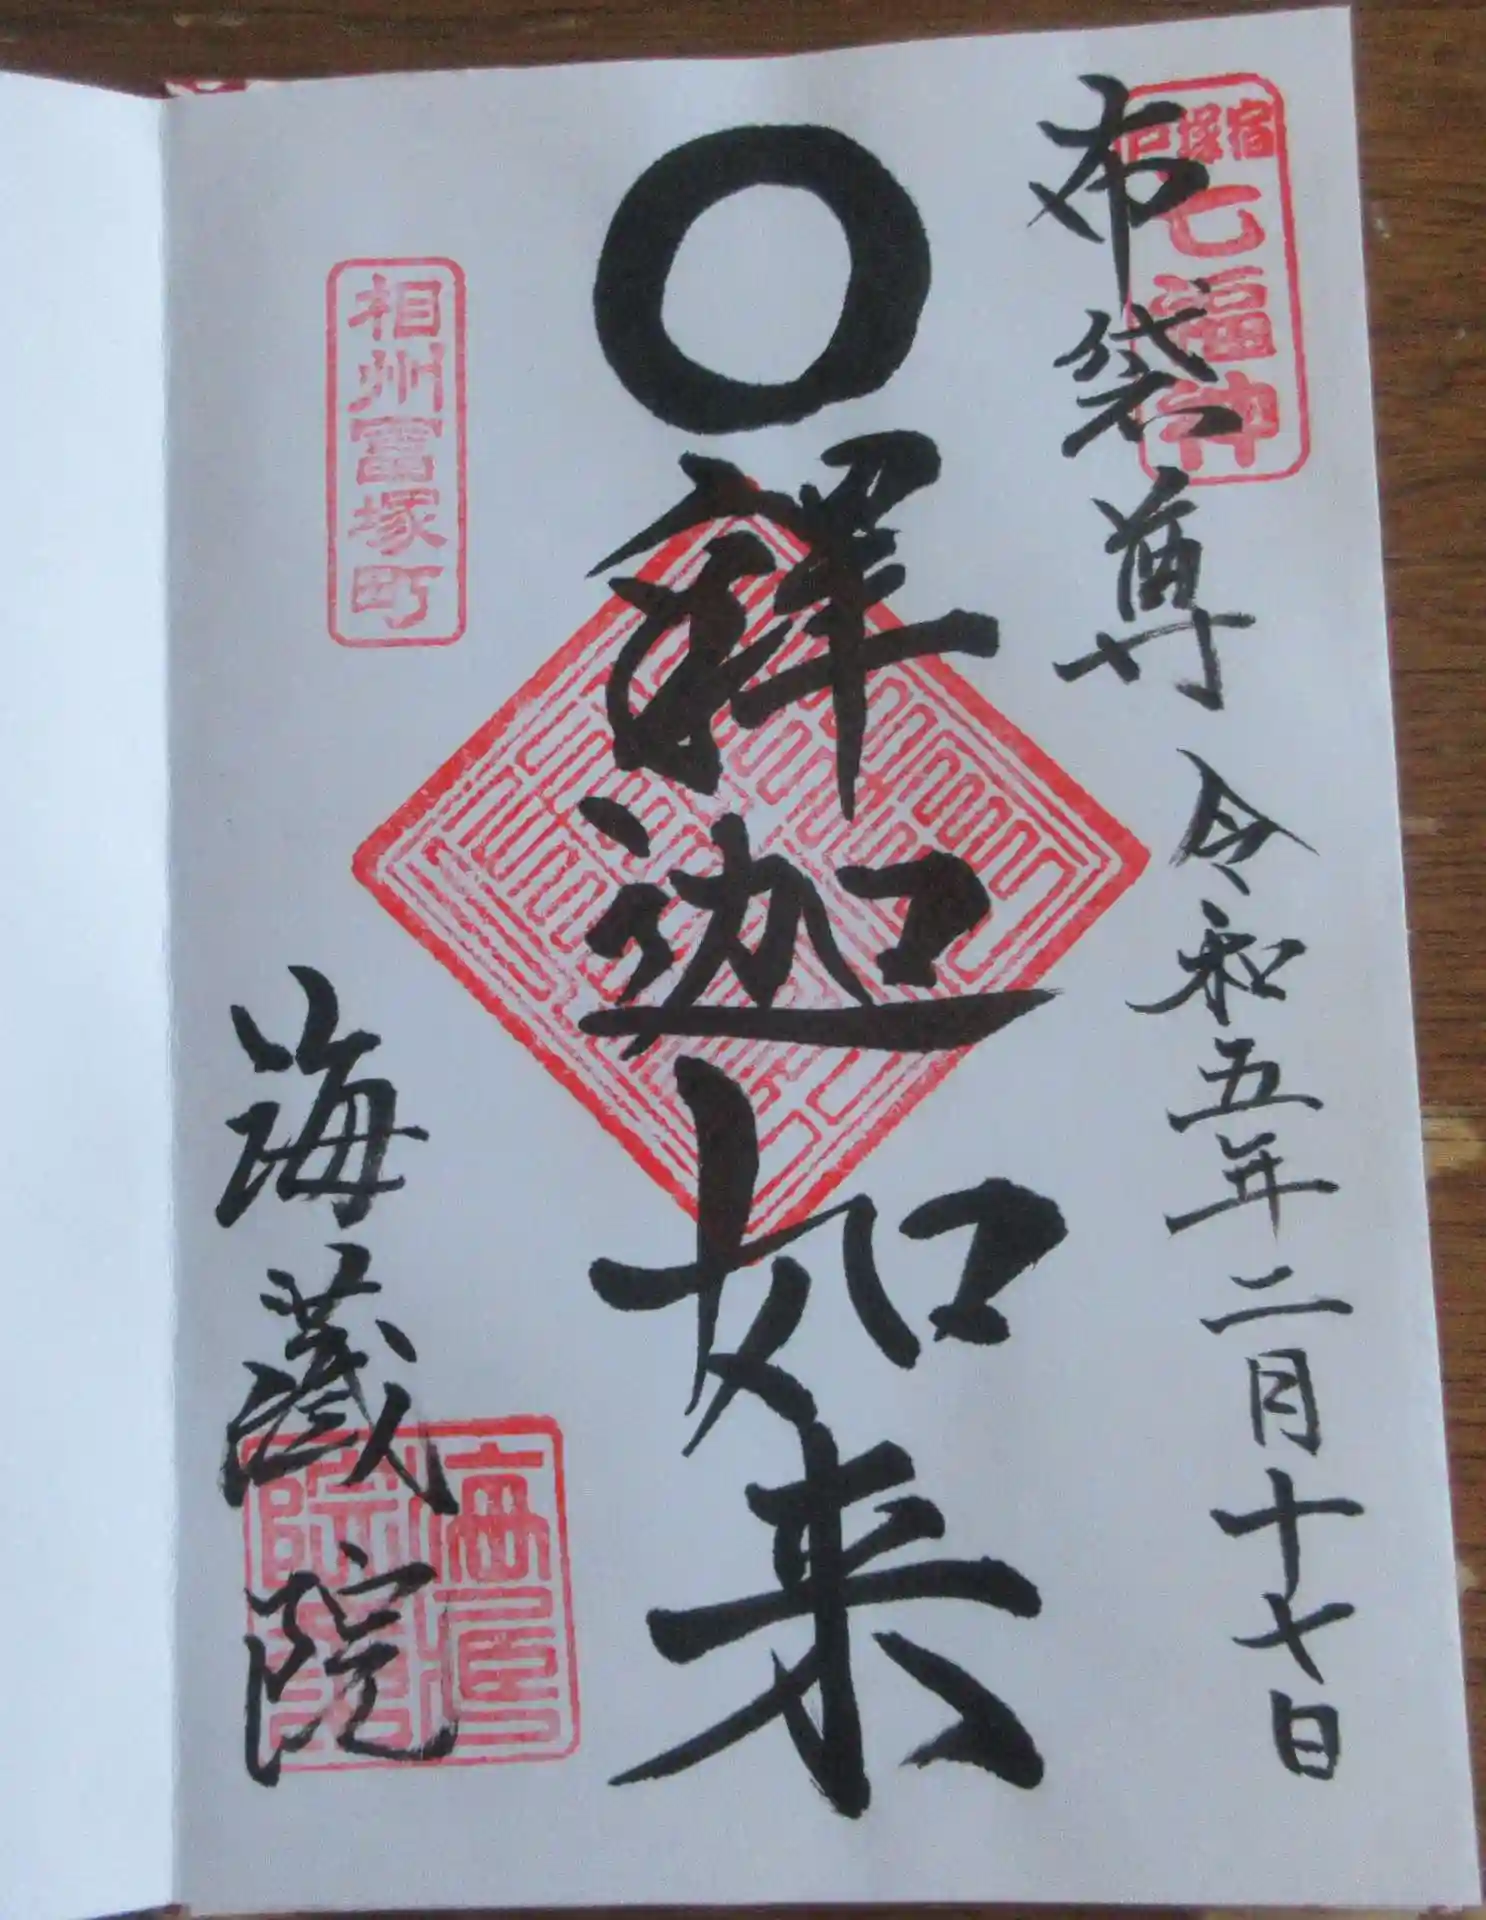 戸塚宿
七福神
布袋尊 令和五年二月十七日
〇釋迦如来
相州富塚町
海蔵院